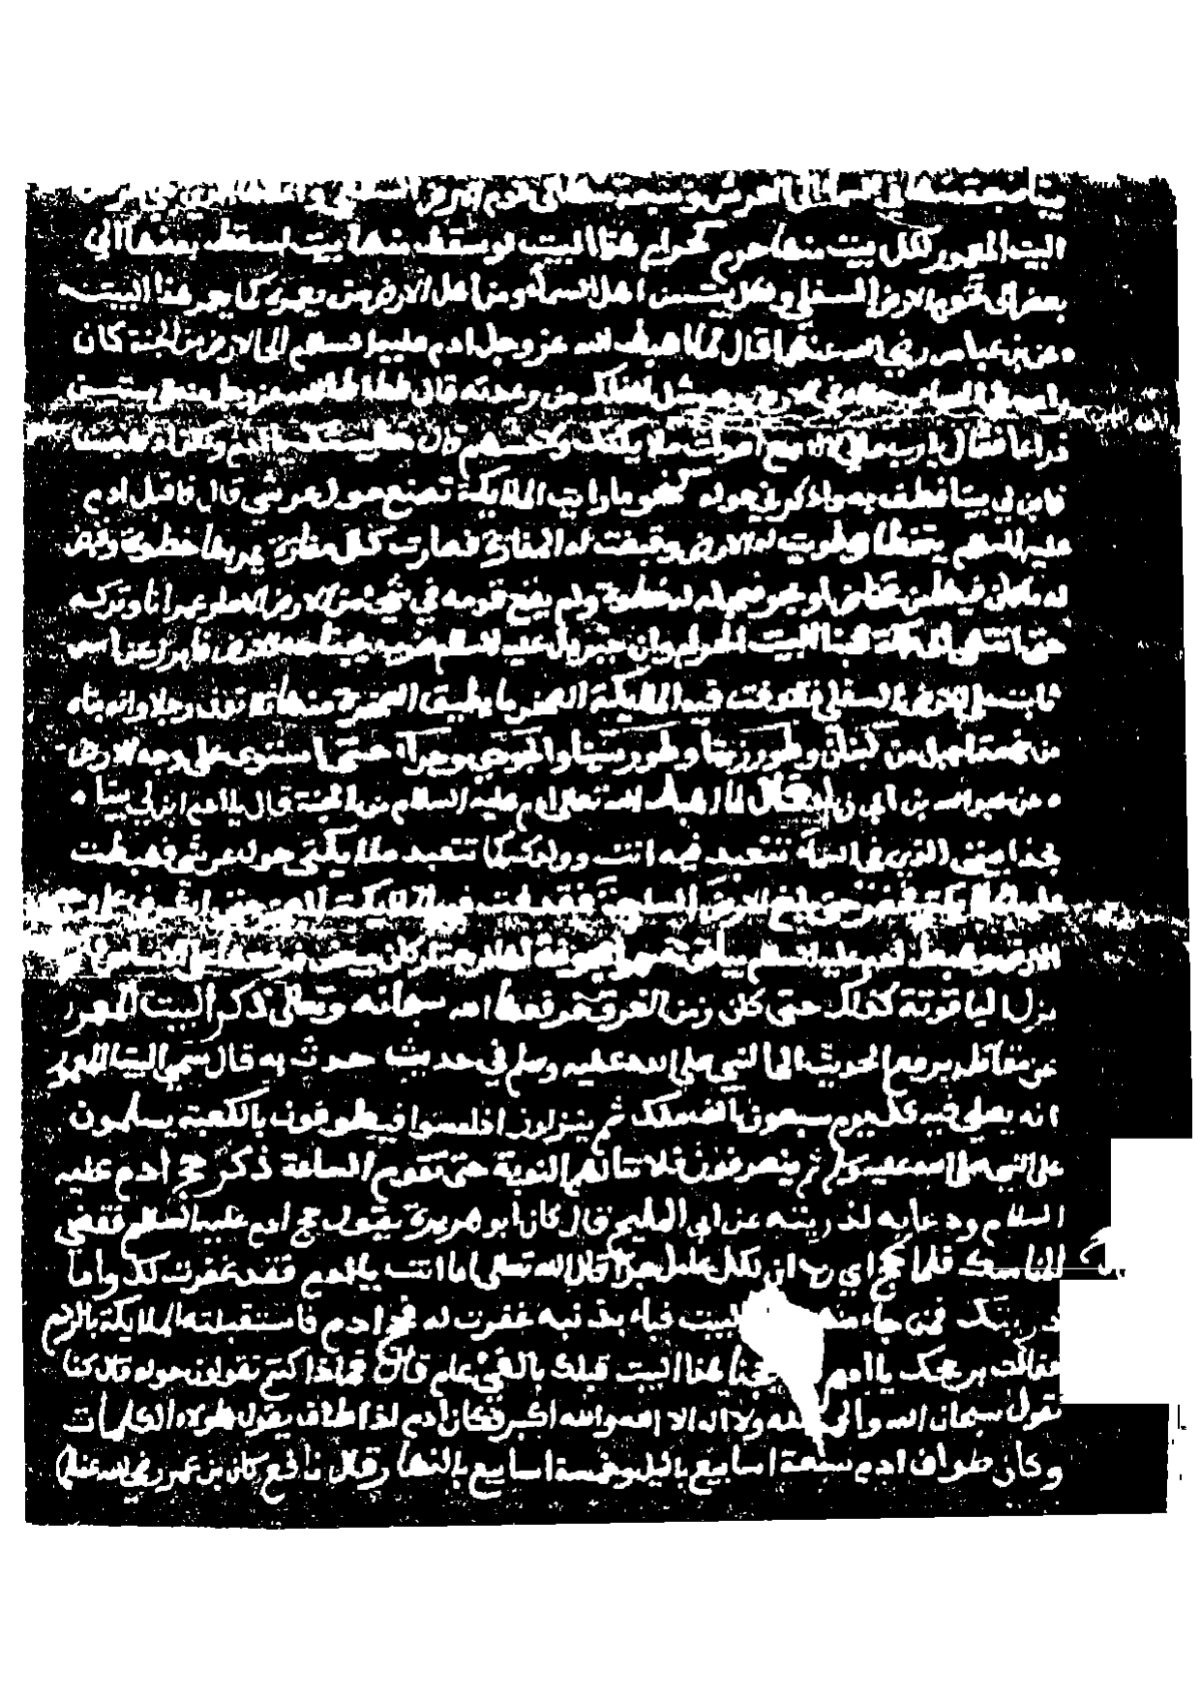 بيتا سبعة منها في السما الى العرش وسبعة منها الى تخوم الارض السفلى
البيت المعمور لكل بيت منها حرم كحرم هذا البيت لو سقط منها بيت لسقط بعضها الى
بعض الى تخوم الارض السفلى ولكل بيت من اهل السماء ومن اهل الارض من يعمره كما يعمر هذا البيت
عن بن عباس رضي الله عنهما قال لما اهبط الله عز وجل ادم عليه السلم الى الارض من الجنة كان
راسه في السماء ورجلاه في الارض وهو مثل الفلك من رعدته قال فطاطا الله عز وجل منه الى ستين
ذراعا فقال يارب مالي لا اسمع اصوات ملايكتك ولا حسهم قال خطيتك يا ادم ولكن اذهب
فابن لي بيتا فطف به واذكرني حوله كنحو ما رايت الملايكة تصنع حول عرشي قال فاقبل ادم
عليه السلم يتخطا فطويت له الارض وقبضت له المفازة فصارت كل مفازة يمر بها خطوة وقبض
له ما كان فيها من مخاض او بحر فجعل له خطوة ولم يقع قدمه في شيء من الارض الا صار عمرانا وبركة
حتى انتهى الى مكة فبنا البيت الحرام وان جبريل عليه السلم ضرب بجناحه الارض فابرز عن اس
ثابت على الارض السفلى فقذفت فيه الملايكة الصخر ما يطيق الصخرة منها ثلاثون رجلا وانه بناه
من خمسة اجبل من لبنان وطور زيتا وطور سينا والجودي وحرا حتى استوى على وجه الارض
عن عبد الله بن ابي زياد قال لما اهبط الله تعالى ادم عليه السلام من الجنة قال يا ادم ابن لي بيتا
بحذا بيتي الذي في السماء تتعبد فيه انت وولدك كما تتعبد ملايكتي حول عرشي فهبطت
عليه الملايكة فحفر حتى بلغ الارض السابعة فقذفت فيه الملايكة الصخر حتى اشرف على وجه
الارض وهبط ادم عليه السلم بياقوتة حمرا مجوفة لها اربعة اركان بيض فوضعها على الاساس فلم
يزل الياقوتة كذلك حتى كان زمن الغرق فرفعها الله سبحانه وتعالى ذكر البيت المعمور
عن مقاتل يرفع الحديث الى النبي صلى الله عليه وسلم في حديث حدث به قال سمي البيت المعمور
انه يصلي فيه كل يوم سبعون الف ملك ثم ينزلون اذا امسوا فيطوفون بالكعبة يسلمون
على النبي صلى الله عليه وسلم ثم ينصرفون فلا تنالهم النوبة حتى تقوم الساعة ذكر حج ادم عليه
السلام ودعايه لذريته عن ابي المليح قال كان ابو هريرة يقول حج ادم عليه السلم فقضى
المناسك فلما حج اي رب ان لكل عامل اجرا قال الله تعالى اما انت يا ادم فقد غفرت لك واما
ذريتك فمن جاء منهم البيت فباء بذنبه غفرت له فحج ادم فاستقبلته الملايكة بالردم
فقالت بر حجك يا ادم حججنا هذا البيت قبلك بالفي عام قال فماذا كنتم تقولون حوله قال كنا
نقول سبحان الله والحمد لله ولا اله الا الله والله اكبر فكان ادم اذا طاف يقول هولاء الكلمات
وكان طواف ادم سبعة اسابيع بالليل وخمسة اسابيع بالنهار قال نافع كان بن عمر رضي الله عنهما